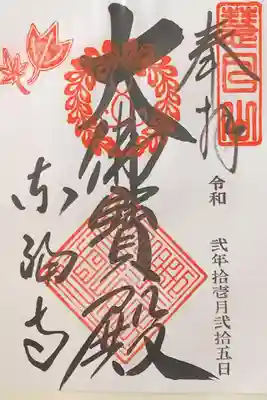 奉拝
慧日山
令和 弐年拾壱月弐拾五日
大佛寳殿
東福寺